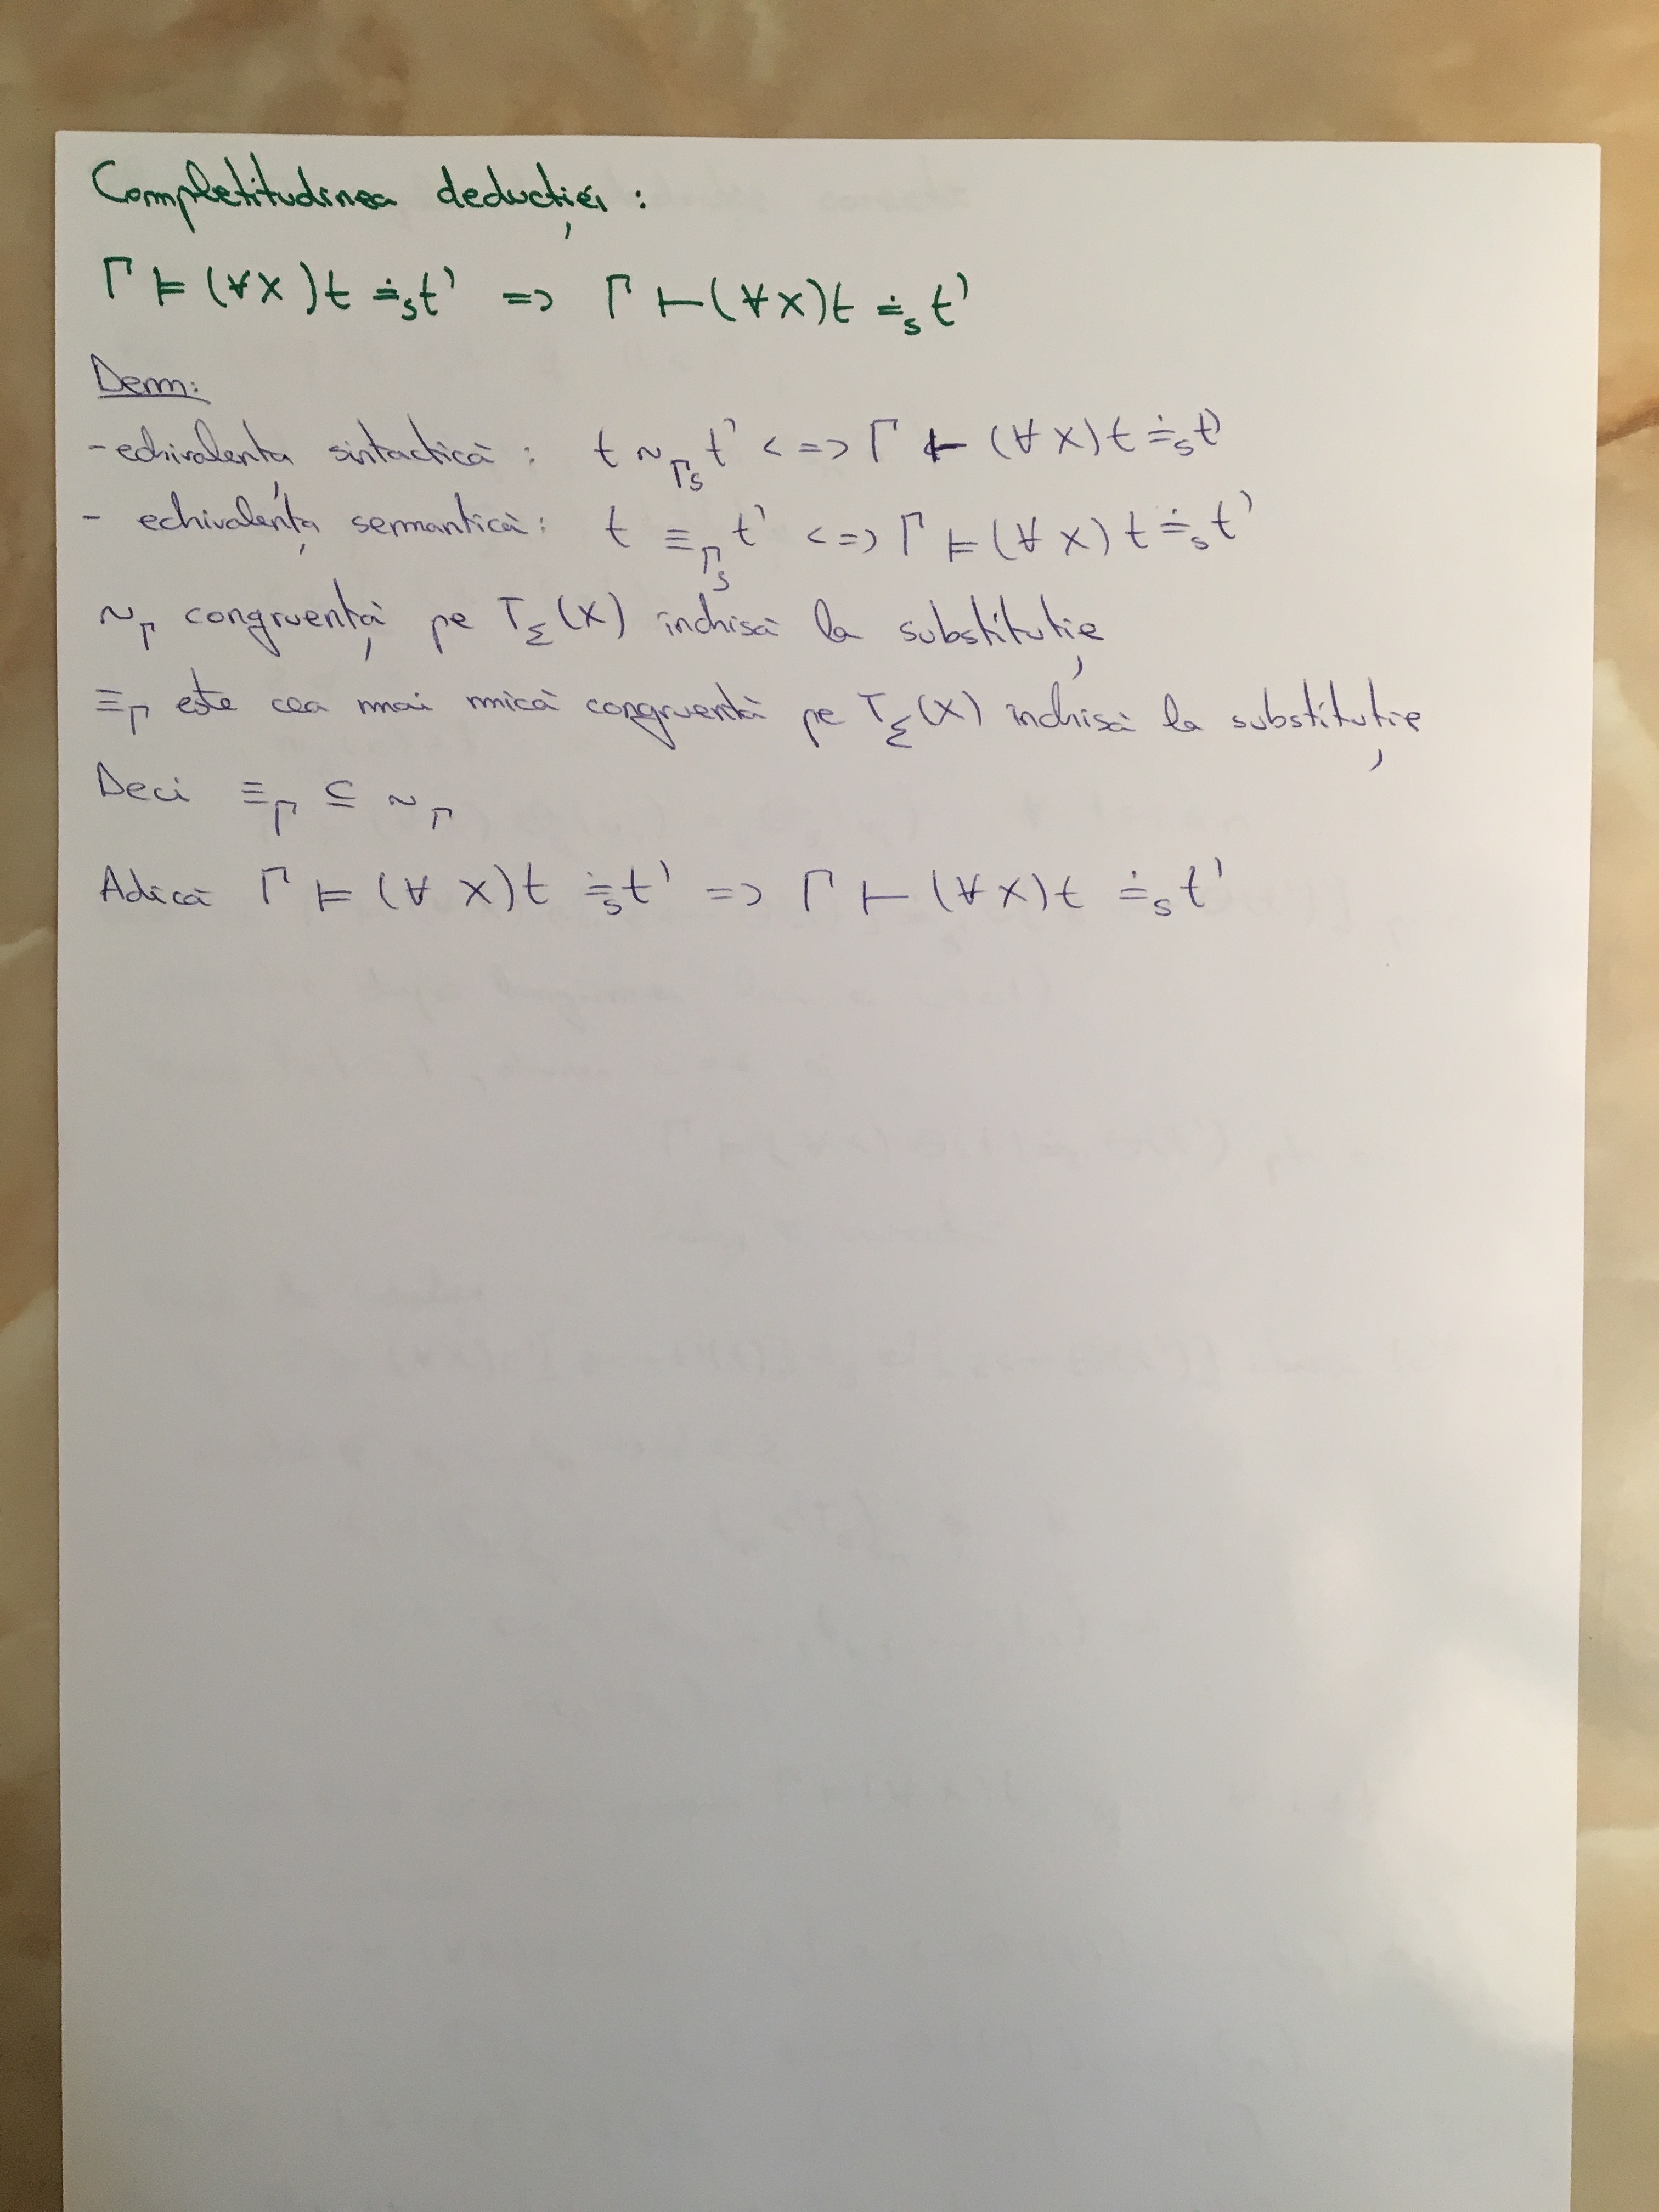 Completitudinea deducției :
Γ ⊨ (∀X)t ≐ₛ t' => Γ ⊢ (∀X)t ≐ₛ t'
Dem:
- echivalența sintactică : t ~Γₛ t' <=> Γ ⊢ (∀X) t ≐ₛ t'
- echivalența semantică : t ≡Γₛ t' <=> Γ ⊨ (∀X) t ≐ₛ t'
~Γ congruență pe T_Σ(X) închisă la substituție
≡Γ este cea mai mică congruență pe T_Σ(X) închisă la substituție
Deci ≡Γ ⊆ ~Γ
Adică Γ ⊨ (∀ X)t ≐ₛ t' => Γ ⊢ (∀X)t ≐ₛ t'